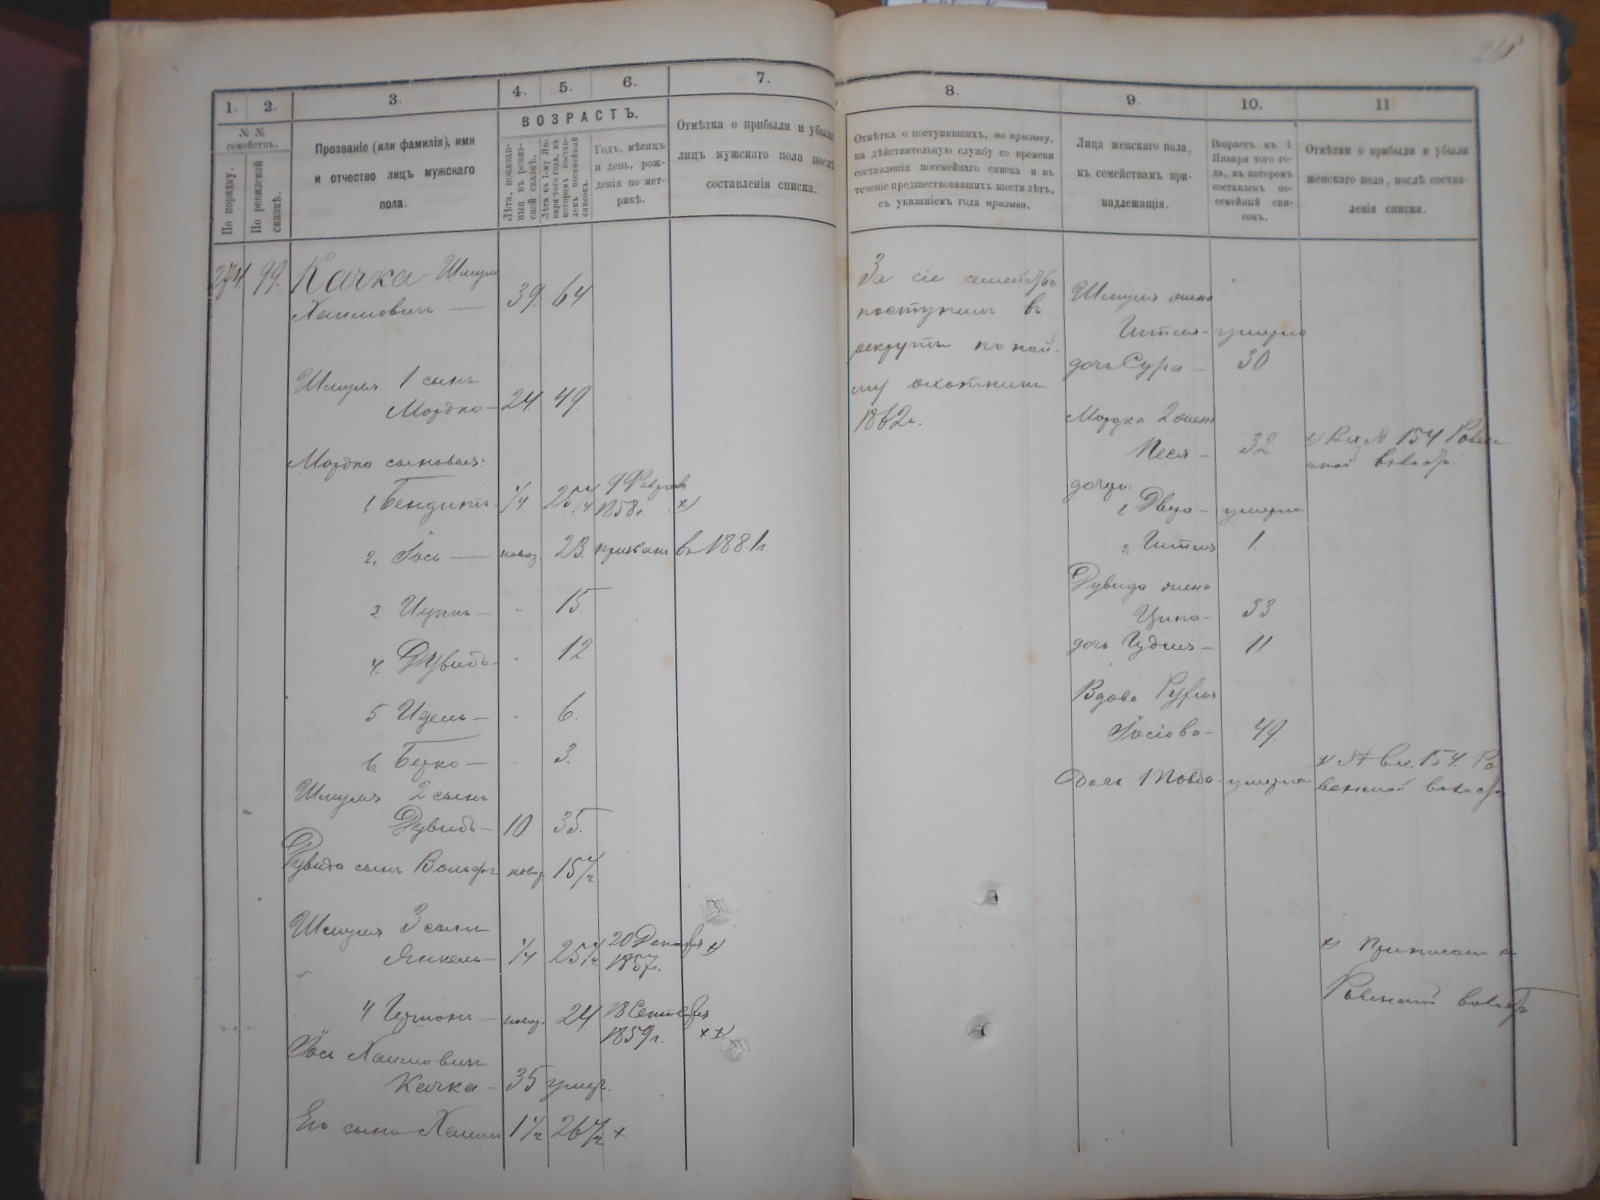 1.
2.
3.
4.
5.
6.
7.
8.
9.
10.
11
№ №
семействъ.
По порядку.
По ревизской
сказкѣ.
Прозваніе (или фамилія), имя
и отчество лицъ мужскаго
пола.
ВОЗРАСТЪ.
Лѣта, показан-
ныя въ ревиз-
ской сказкѣ.
Лѣта къ 1-му Ян-
варя того года, въ
которомъ состав-
ленъ посемейный
списокъ.
Годъ, мѣсяцъ
и день, рож-
денія по мет-
рикѣ.
Отмѣтка о прибыли и убыли
лицъ мужскаго пола послѣ
составленія списка.
Отмѣтка о поступившихъ, по призыву,
на дѣйствительную службу со времени
составленія посемейнаго списка и въ
теченіе предшествовавшихъ шести лѣтъ,
съ указаніемъ года призыва.
Лица женскаго пола,
къ семействамъ при-
надлежащія.
Возрастъ къ 1
Января того го-
да, въ которомъ
составленъ по-
семейный спи-
сокъ.
Отмѣтки о прибыли и убыли
женскаго пола, послѣ состав-
ленія списка.
274 99. Качка Шмуль
Хаимовичъ — 39. 64
Шмуля 1 сынъ
Мордко — 24. 49.
Мордка сыновья:
1, Бендитъ — 1/4 25 1/4 9 Февраля
1858 г. x)
2, Іось — новор. 23. призванъ въ 1881 г.
3 — " 15.
4. Дувидъ — " 12
5. Идель — " 6.
6. Берко — " 3.
Шмуля 2 сынъ
Дувидъ — 10 35.
Дувида сынъ Вольфъ новор. 15 1/2
Шмуля 3 сынъ
Янкель — 1/4 25 1/4 20 Декабря x)
1857 г.
4 — новор. 24 18 Сентября
1859 г. xx)
Іось Хаимовичъ
Качка — 35 умер.
Его сынъ Хаимъ 1 1/2 26 1/2 x
За сіе семейство
поступилъ въ
рекруты по най-
му охотникъ
1862 г.
Шмуля жена
умерла
дочь Сура — 30
Мордка 2 жена
Песя — 32 x) № 154 Ровен
ской
дочери:
1, Двера — умерла
2, 1.
Дувида жена
Ципа — 33.
дочь — 11
Вдова Руфля
Іосіова — 49.
Дочь 1 Товба — умерла x) 154. Ро
венской
x) Приписанъ къ
Ровенской